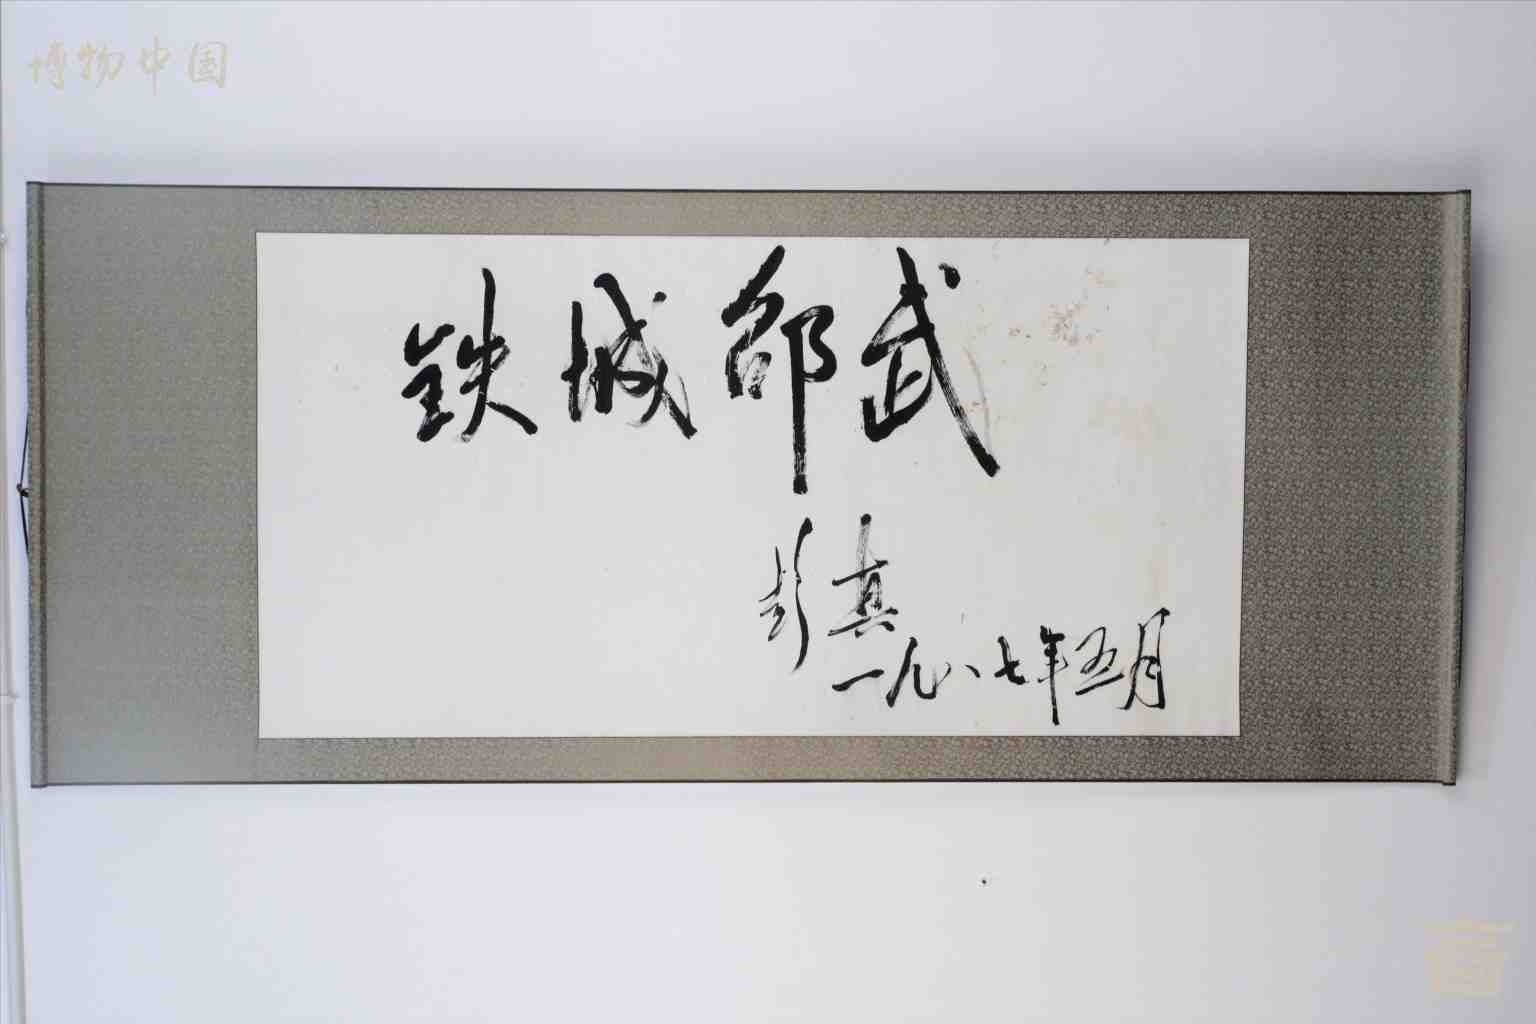 博物中国
铁城邵武
彭真
一九八七年五月